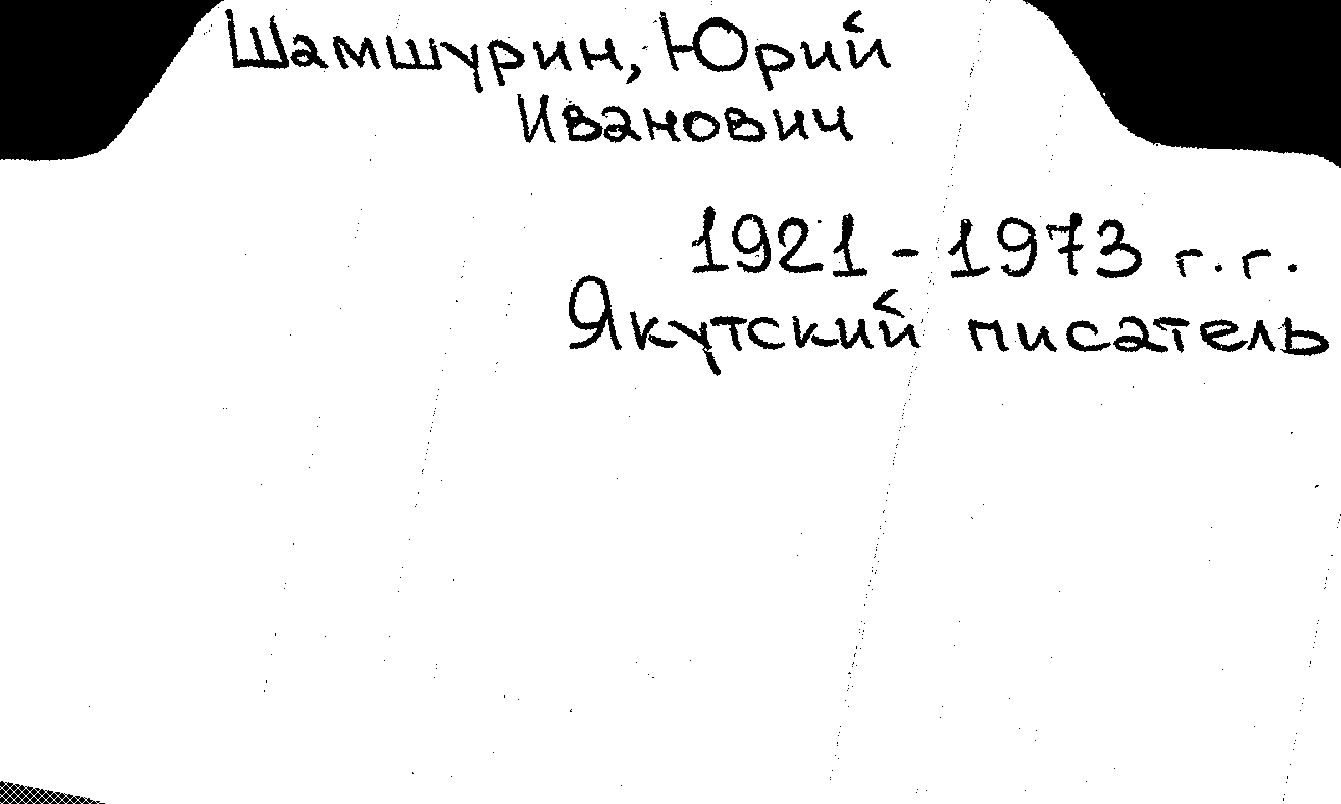 Шамшурин, Юрий
Иванович
1921 - 1973 г. г.
Якутский писатель